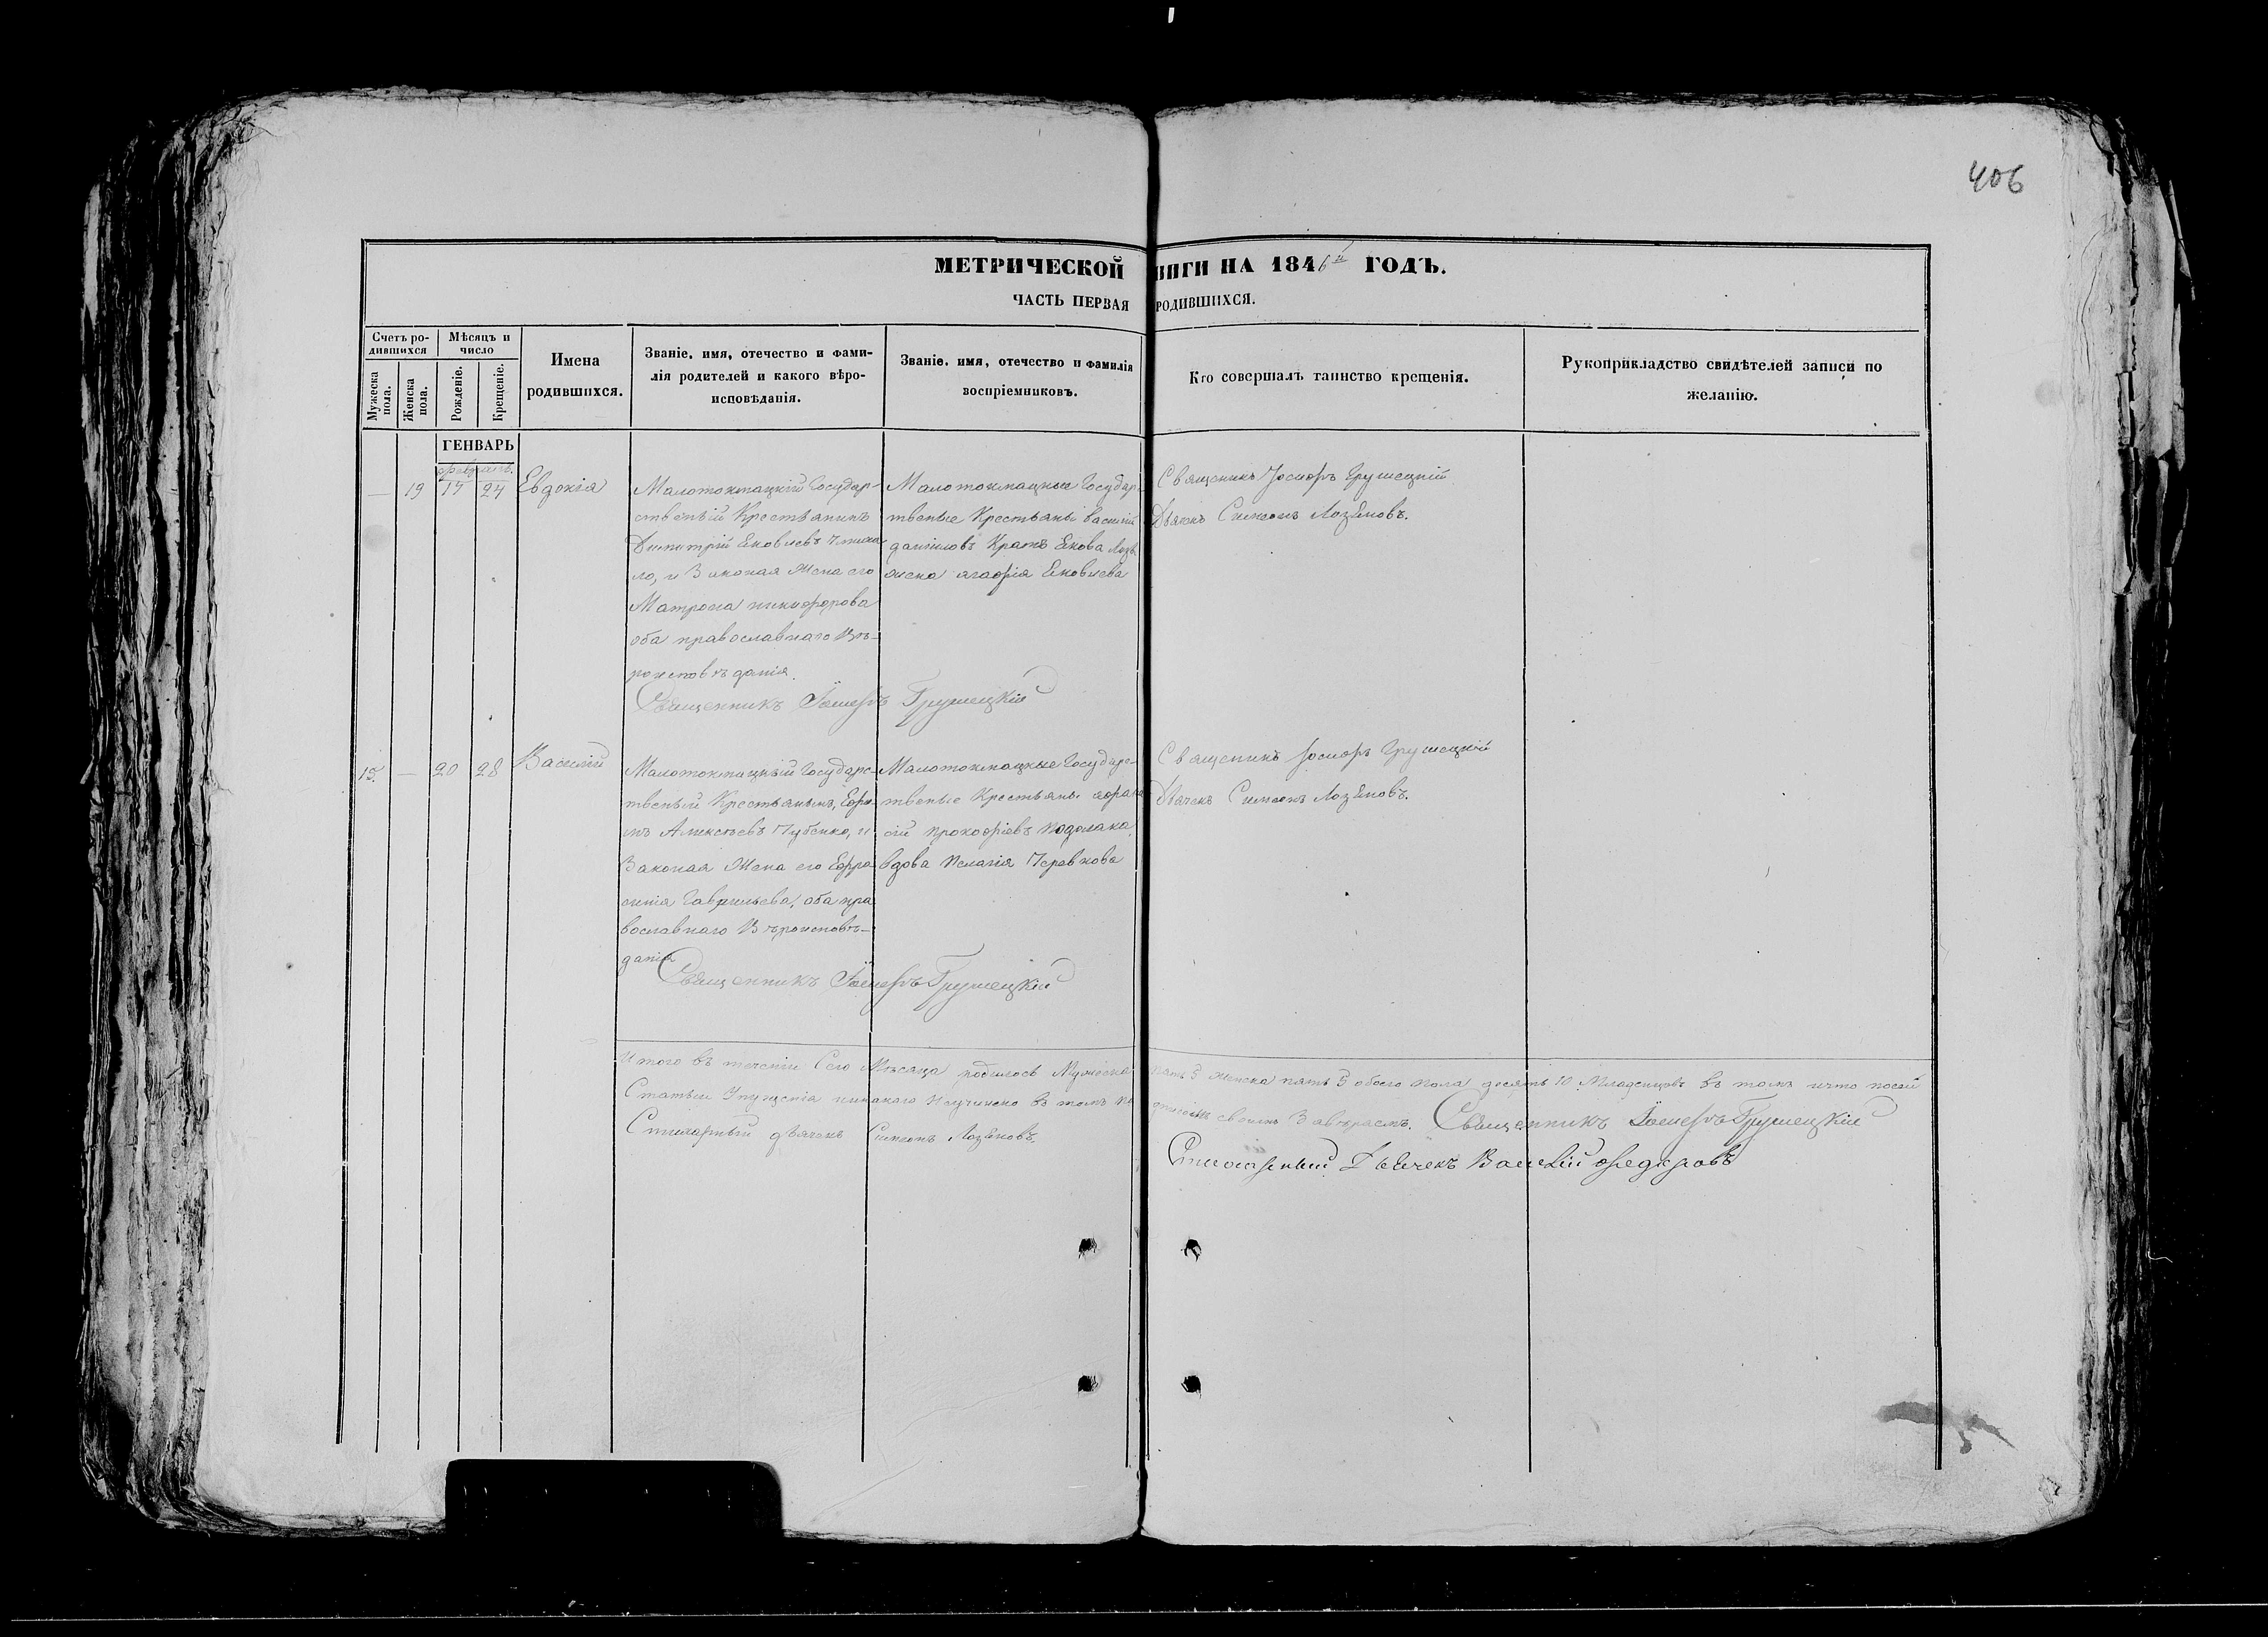 406
МЕТРИЧЕСКОЙ НИГИ НА 1846й ГОДЪ.
ЧАСТЬ ПЕРВАЯ РОДИВШИХСЯ.
Счетъ ро-
дившихся
Мужеска пола.
Женска пола.
Мѣсяцъ и
число
Рожденіе.
Крещеніе.
Имена
родившихся.
Званіе, имя, отечество и фами-
лія родителей и какого вѣро-
исповѣданія.
Званіе, имя, отечество и фамилія
воспріемниковъ.
Кто совершалъ таинство крещенія.
Рукоприкладство свидѣтелей записи по
желанію.
ГЕНВАРЬ
— 19 24 Евдокія
Малотокмацкій Государ-
ственый Крестьянинъ
Димитрій Ековлевъ
ло, и Законая Жена его
Матрона никифорова
оба православнаго Вѣ-
роисповѣданія.
Малотокмацкые Государ-
твеные Крестьяны василій
даниловъ Екова
жена агафія Ековлева
Свящоникъ Іосифъ Грушецкій
Дьячокъ Симеонъ Лозѣновъ.
Священникъ Іосифъ Грушецкій
15. — 20 28 Василій
Малотокмацкый Государс-
твеный Крестьянынъ, Ефи-
мъ Алексѣевъ Губенко, и
Законая Жена его Ефро-
синія Гаврильева, оба пра
вославнаго Вѣроисповѣ-
данія
Малотокмацкые Государс-
твеные Крестьяны афана
сій прокофіевъ подолака,
вдова Пелагія
Свящоникъ Іосифъ Грушецкій
Дьячокъ Симеонъ Лозѣновъ.
Священникъ Іосифъ Грушецкій
Итого въ теченіи Сего Мѣсяца родилось Мужеска пять 5 женска пять 5 обоего пола десять 10 Младенцовъ въ томъ и что посей
Статьи Упущенія никакаго Неучинено въ томъ своимъ Завѣраемъ. Священникъ Іосифъ Грушецкій
Стихарный дьячокъ Симеонъ Лозѣновъ.
Стихарный Дьячекъ Василій федоровъ